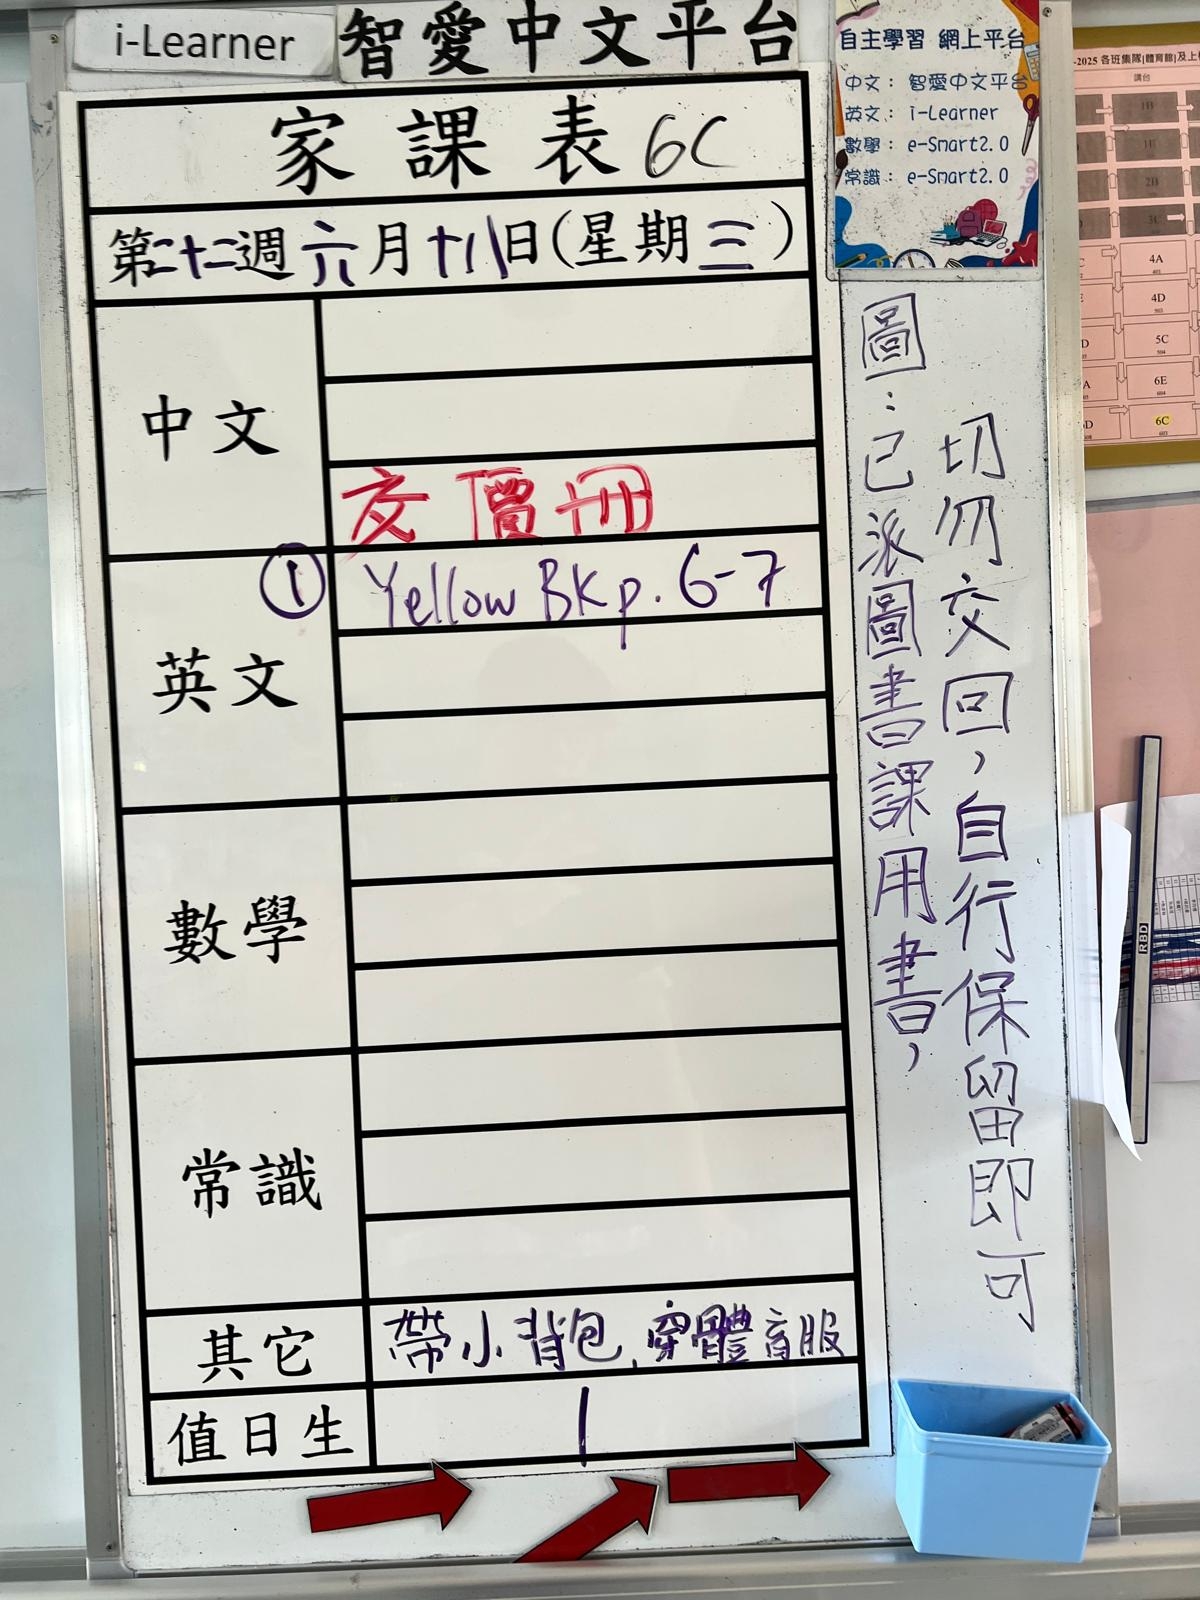 i-Learner 智愛中文平台
家課表 6C
第二十二週 六月十八日(星期三)
中文
交價冊
英文
① Yellow BK p. 6-7
數學
常識
其它 帶小背包、穿體育服
值日生 1
自主學習 網上平台
中文： 智愛中文平台
英文： i-Learner
數學： e-Smart2.0
常識： e-Smart2.0
圖：已派圖書課用書，
切勿交回，自行保留即可
-2025 各班集隊[體育館]及上
講台
1B
2B
3C
4A
4D
5C
6E
6C
RBD